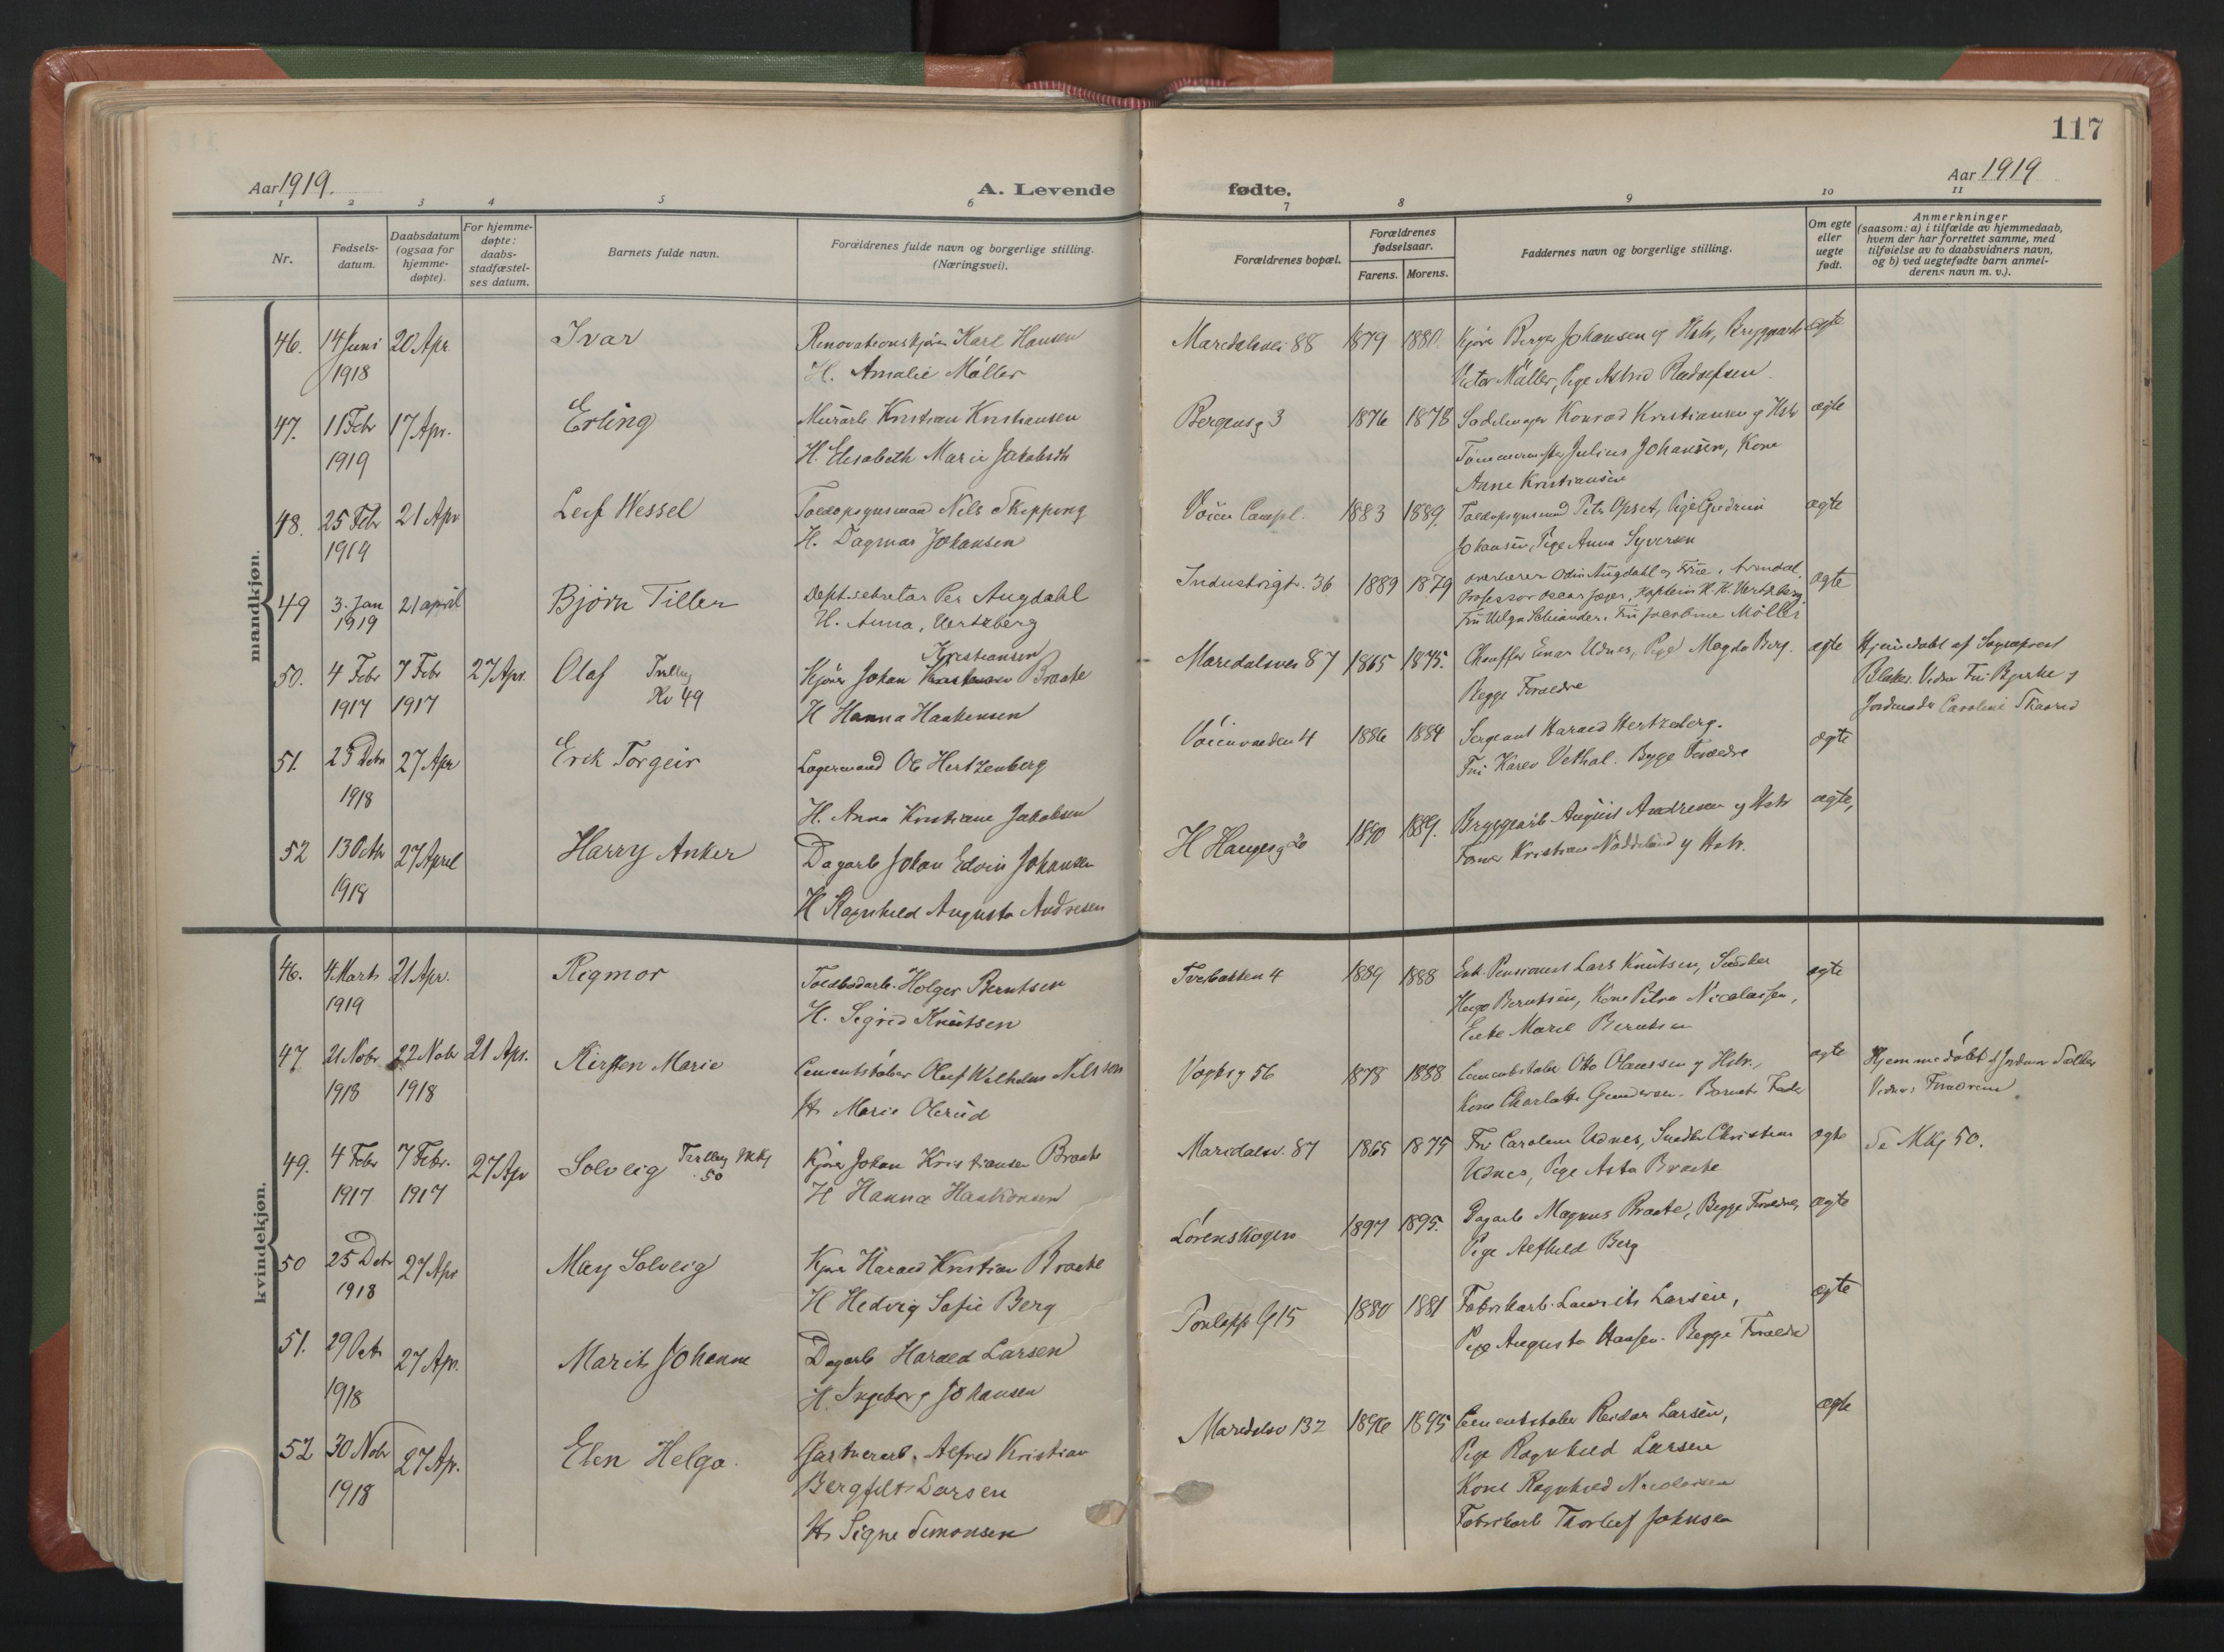 117
Aar 1919.
A. Levende
fødte.
Aar 1919
1 2 3 4 5 6 7 8 9 10 11
Nr.
Fødsels-
datum.
Daabsdatum
(ogsaa for
hjemme-
døpte).
For hjemme-
døpte:
daabs-
stadfæstel-
ses datum.
Barnets fulde navn.
Forældrenes fulde navn og borgerlige stilling.
(Næringsvei).
Forældrenes bopæl.
Forældrenes
fødselsaar.
Farens. Morens.
Faddernes navn og borgerlige stilling.
Om egte
eller
uegte
født.
Anmerkninger
(saasom: a) i tilfælde av hjemmedaab,
hvem der har forrettet samme, med
tilføielse av to daabsvidners navn,
og b) ved uegtefødte barn anmel-
derens navn m. v.).
mandkjøn.
46. 14 Juni 20 Apr. Ivar Renovationskjører Karl Hansen Maredalsvei 88 1879 1880. Kjører Birger Johansen og Hstr, Bryggearb ægte
1918 H. Amalie Möller Victor Möller, Pige Astrid
47. 11 Febr 17 Apr. Erling Murarb Kristian Kristiansen Bergensg 3 1876 1878 Sadelmager Konrad Kristiansen og Hstr ægte
1919 H. Elisabeth Marie Jakobsen Julius Johansen, Kone
Anne Kristiansen
48. 25 Febr 21 Apr Leif Wessel Toldopsynsmand Nils Skipping Voien Campl. 1883 1889. Toldopsynsmand Petr Opset, Pige Gudrun ægte
1919 H. Dagmar Johansen Johansen, Pige Anna Syversen
49 3. Jan 21 april Bjørn Tiller Dept.sekretær Per Augdahl Industrigt. 36 1889 1879 overlærer Odin Augdahl og Frue, Arendal. ægte
1919 H. Anna, Hertzberg Professor Oscar Jæger, Kaptein K. K. Hertzberg
Fru Helga Schiander. Fru Jacobine Möller
Kristiansen
50. 4 Febr 7 Febr 27 Apr. Olaf Tvilling Kjører Johan Braate Maredalsvei 87 1865 1875. Chauffør Einar Udnes, Pige Magda Berg. ægte Hjemmedøbt af Sogneprest
1917 1917 Kv 49 H Hanna Haakensen Begge Forældre Blakes. Vidner Fru Bjerke og
Jordmoder Caroline Skaared
51. 25 Dcbr 27 Apr Erik Torgeir Lagermand Ole Hertzenberg Voienvolden 4 1886 1884 Sergeant Harald Hertzberg. ægte
1918 H. Anna Kristiane Jakobsen Fru Karen Vethal. Begge Forældre
52 13 Octbr 27 April Harry Anker Dagarb Johan Edvin Johansen H Haugesg 20 1890 1889. Bryggearb August Andresen og Hstr ægte,
1918 H Ragnhild Augusta Andresen Former Kristian Nøddelund og Hstr.
kvindekjøn.
46. 4 Marts 21 Apr. Rigmor Toldbodarb. Holger Berntsen Tvebakken 4 1889 1888 Enk. Pensionist Lars Knutsen, Snedker ægte
1919 H. Sigrid Knutsen Hugo Berntsen, Kone Petra Nicolaisen,
Enke Marie Berntsen
47 21 Nobr 22 Nobr 21 Apr. Kirsten Marie Cementstøber Oluf Wilhelm Nilssen Vogtsg 56 1878 1888 Cementstøber Otto Olaussen og Hstr., ægte Hjemmedøbt af Jordmor
1918 1918 H. Marie Olerud Kone Charlotte Gundersen. Barnets Fader Vidner: Forældrene
49. 4 Febr 7 Febr. 27 Apr Solveig Tvilling Mkj Kjører Johan Kristiansen Braate Maredalsv. 87 1865 1875 Fru Caroline Udnes, Snedker Christian ægte Se Mkj 50.
1917 1917 50 H Hanna Haakonsen Udnes, Pige Asta Braate
50 25 Dcbr 27 Apr May Solveig Kjører Harald Kristian Braate Lørenskogen 1897 1895. Dagarb Magnus Braate, Begge Forældre, ægte
1918 H Hedvig Sofie Berg Pige Alfhild Berg
51. 29 Oct 27 Apr. Marit Johanne Dagarb Harald Larsen 1880 1881 Fabrikarb. Laurits Larsen, ægte
1918 H. Ingeborg Johansen Pige Augusta Hansen. Begge Forældre
52 30 Nobr 27 Apr. Elen Helga. Gartnerarb. Alfred Kristian Maredalsv 132 1896 1895 Cementstøber Reidar Larsen, ægte
1918 Bergfelt Larsen Pige Ragnhild Larsen
H. Signe Simonsen Kone Ragnhild Nicolaisen
Fabrikarb Thorleif Johnsen